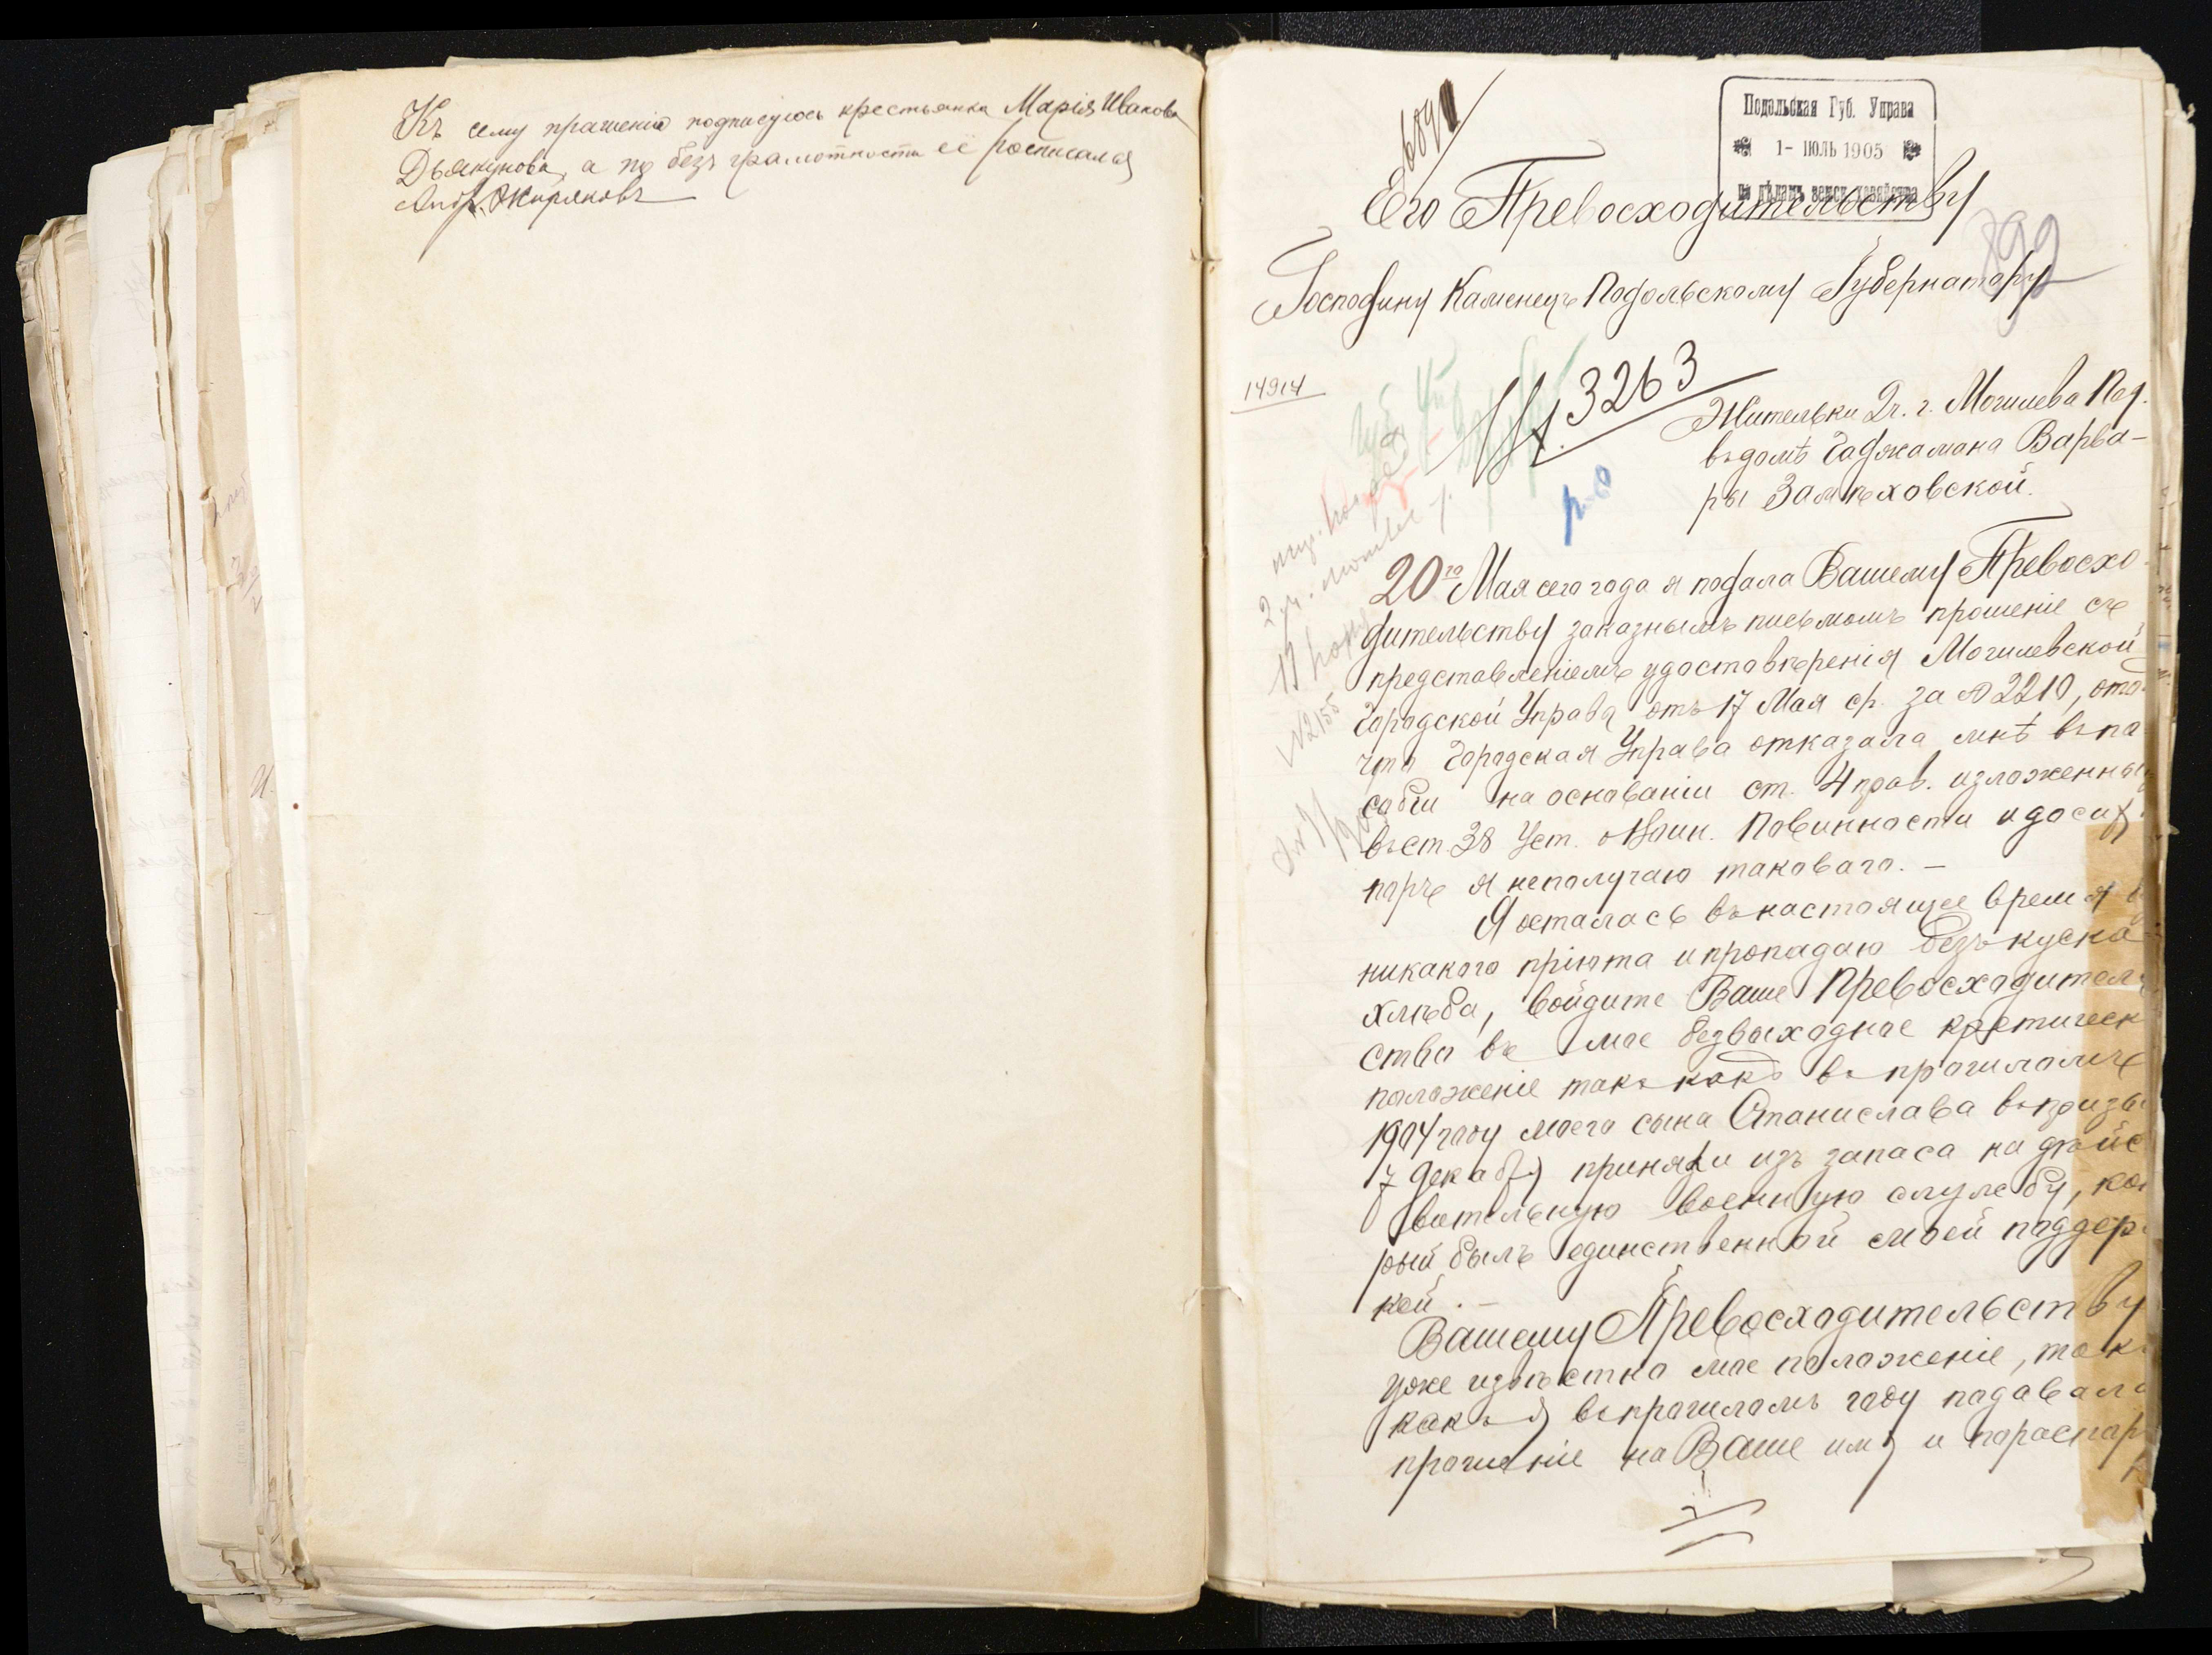 Къ сему прошенію подписуюсь крестьянка Марія Иванова
Дьякунова, а по безграмотности её росписался
Андр. Жиряковъ
Подольская Губ. Управа
1- ІЮЛЬ 1905
по дѣламъ земск. хозяйства
Его Превосходительству
Господину Каменецъ Подольскому Губернатору
14914
3263
Жительки 2ч. г. Могилева Под.
въ домѣ Гаджамана Варва-
ры Залѣховской.
20го Мая сего года я подала Вашему Превосхо-
дительству заказнымъ письмомъ прошеніе съ
представленіемъ удостовѣренія Могилевской
Городской Управы отъ 17 Мая с/г. за № 2210, ото
что Городская Управа отказала мнѣ въ по
собіи на основаніи ст. 4 прав. изложенны
въ ст. 38 Уст. о Воин. Повинности и досих
поръ я неполучаю таковаго. —
Я осталась въ настоящее время
никакого пріюта и пропадаю безъ куска
хлѣба, войдите Ваше Превосходитель
ство въ мое безвыходное критическ
положеніе такъ какъ въ прошломъ
1904 году моего сына Станислава въ призы
7 декабря приняли изъ запаса на дѣйс
вительную военную службу, кот
рый былъ единственной моей поддер
кой. —
Вашему Превосходительству
уже извѣстно мое положеніе, такъ
какъ я въ прошломъ году подавала
прошеніе на Ваше имя и пораспор